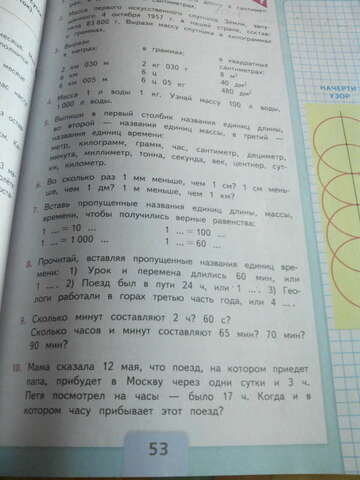 2. Масса первого искусственного спутника Земли, запу-
щенного 4 октября 1957 г. в нашей стране, состав-
ляла 83 600 г. Вырази массу спутника в килограммах
и граммах.
3. Вырази
в метрах: в граммах: в квадратных
сантиметрах:
2 км 030 м 2 кг 030 г 8 м²
6 км 40 дм²
6 км 005 м 6 ц 05 кг 480 дм²
4. Масса 1 л воды 1 кг. Узнай массу 100 л воды,
1 000 л воды.
5. Выпиши в первый столбик названия единиц длины,
во второй — названия единиц массы, в третий —
названия единиц времени:
метр, килограмм, грамм, час, сантиметр, дециметр,
минута, миллиметр, тонна, секунда, век, центнер, сут-
ки, километр.
6. Во сколько раз 1 мм меньше, чем 1 см? 1 см мень-
ше, чем 1 дм? 1 м меньше, чем 1 км?
7. Вставь пропущенные названия единиц длины, массы,
времени, чтобы получились верные равенства:
1 ... = 10 ... 1 ... = 100 ...
1 ... = 1 000 ... 1 ... = 60 ...
8. Прочитай, вставляя пропущенные названия единиц вре-
мени: 1) Урок и перемена длились 60 мин, или
1 ... . 2) Поезд был в пути 24 ч, или 1 ... . 3) Гео-
логи работали в горах третью часть года, или 4 ... .
9. Сколько минут составляют 2 ч? 60 с?
Сколько часов и минут составляют 65 мин? 70 мин?
90 мин?
10. Мама сказала 12 мая, что поезд, на котором приедет
папа, прибудет в Москву через одни сутки и 3 ч.
Петя посмотрел на часы — было 17 ч. Когда и в
котором часу прибывает этот поезд?
53
НАЧЕРТИ
УЗОР